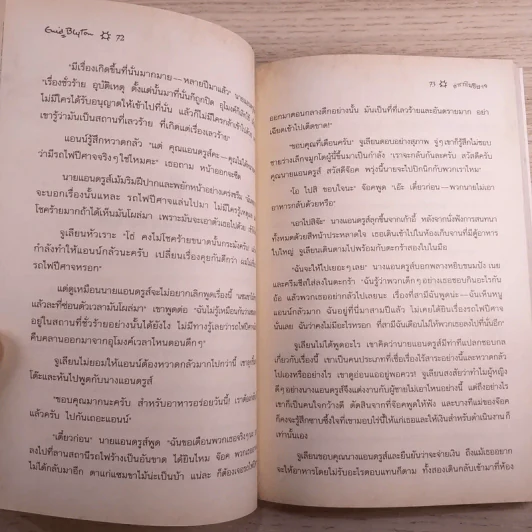 Enid Blyton ☆ 72
"มีเรื่องเกิดขึ้นที่นั่นมากมาย—หลายปีมาแล้ว"
"เรื่องชั่วร้าย อุบัติเหตุ ตั้งแต่นั้นมาที่นั่นก็ถูกปิด อุโมงค์ก็
ไม่มีใครได้รับอนุญาตให้เข้าไปที่นั่น แล้วก็ไม่มีใครกล้าเข้าไป
เขารู้ว่ามันเป็นสถานที่เลวร้าย ที่เกิดแต่เรื่องเลวร้าย"
แอนน์รู้สึกหวาดกลัว "แต่ คุณแอนดรูส์คะ—คุณไม่ได้
ว่ามีรถไฟปีศาจจริงๆ ใช่ไหมคะ" เธอถาม หน้าออกจะซีด
นายแอนดรูส์เม้มริมฝีปากและพยักหน้าอย่างเคร่งขรึม
จะบอกเรื่องนั้นแหละ รถไฟปีศาจแล่นไปมา ไม่มีใครรู้
โชคร้ายมากถ้าได้เห็นมันโผล่มา เพราะมันจะเอาตัวเธอไปด้วย
จูเลียนหัวเราะ "โธ่ คงไม่โชคร้ายขนาดนั้นกระมังครับ
กำลังทำให้แอนน์กลัวนะครับ เปลี่ยนเรื่องคุยกันดีกว่า
รถไฟปีศาจหรอก"
แต่ดูเหมือนนายแอนดรูส์จะไม่อยากเลิกพูดเรื่องนี้
แล้วละที่ซ่อนตัวเวลามันโผล่มา" เขาพูดต่อ "ฉันไม่รู้เหมือนกัน
อยู่ในสถานที่ชั่วร้ายอย่างนั้นได้ยังไง ไม่มีทางรู้เลยว่ารถไฟปีศาจ
คืบคลานออกมาจากอุโมงค์เวลาไหนตอนดึกๆ"
จูเลียนไม่ยอมให้แอนน์ต้องหวาดกลัวมากไปกว่านี้ เขาลุกขึ้น
โต๊ะและหันไปพูดกับนางแอนดรูส์
"ขอบคุณมากนะครับ สำหรับอาหารอร่อยวันนี้!
แล้วครับ ไปกันเถอะแอนน์"
"เดี๋ยวก่อน" นายแอนดรูส์พูด "ฉันขอเตือนพวกเธอจริงๆ
ลงไปที่ลานสถานีรถไฟร้างเป็นอันขาด ได้ยินไหม จ๊อค
ไม่ได้กลับมาอีก ตาแก่แซมขาไม้น่ะเป็นบ้า แน่ละ ก็ต้องเจอ
73 ☆
ออกมาตอนกลางดึกอย่างนั้น มันเป็นที่ที่เลวร้ายและอันตรายมาก อย่า
เฉียดเข้าไปเด็ดขาด!"
"ขอบคุณที่เตือนครับ" จูเลียนตอบอย่างสุภาพ จู่ๆ เขาก็รู้สึกไม่ชอบ
ชายร่างเล็กจมูกโตผู้นี้ขึ้นมาเป็นกำลัง "เราจะกลับกันละครับ สวัสดีครับ
คุณนายแอนดรูส์ สวัสดีจ๊อค พรุ่งนี้นายจะไปปิกนิกกับพวกเราไหม"
"โอ ไปสิ ขอบใจนะ" จ๊อคพูด "เอ๊ะ เดี๋ยวก่อน—พวกนายไม่เอา
อาหารกลับด้วยหรือ"
"เอาไปสิจ๊ะ" นางแอนดรูส์ลุกขึ้นจากเก้าอี้ หลังจากนั่งฟังการสนทนา
ทั้งหมดด้วยสีหน้าประหลาดใจ เธอเดินเข้าไปในห้องเก็บจานที่มีตู้อาหาร
ใบใหญ่ จูเลียนเดินตามไปพร้อมกับตะกร้าสองใบในมือ
"ฉันจะให้ไปเยอะๆ เลย" นางแอนดรูส์บอกพลางหยิบขนมปัง เนย
และครีมชีสใส่ลงในตะกร้า "ฉันรู้ว่าพวกเด็กๆ อย่างเธอชอบกินอะไรกัน
อ้อ แล้วพวกเธออย่ากลัวไปเลยนะ เรื่องที่สามีฉันพูดน่ะ—ฉันเห็นหนู
แอนน์กลัวมาก ฉันอยู่ที่นี่มาสามปีแล้ว ไม่เคยได้ยินเรื่องรถไฟปีศาจ
นั่นเลย ฉันว่าคงไม่มีอะไรหรอก ที่สามีฉันเตือนไม่ให้พวกเธอลงไปที่นั่นอีก"
จูเลียนไม่ได้พูดอะไร เขาคิดว่านายแอนดรูส์มีท่าทีแปลกชอบกล
เกี่ยวกับเรื่องนี้ เขาเป็นคนประเภทที่เชื่อเรื่องไร้สาระอย่างนี้และหวาดกลัว
ไปเองหรืออย่างไร เขาดูอ่อนแออยู่พอควร! จูเลียนสงสัยว่าทำไมผู้หญิง
ดีๆ อย่างนางแอนดรูส์จึงแต่งงานกับผู้ชายไม่เอาไหนอย่างนี้ แต่ถึงอย่างไร
เขาก็เป็นคนใจกว้างดี ตัดสินจากที่จ๊อคพูดให้ฟัง และบางทีแม่ของจ๊อค
ก็คงจะรู้สึกซาบซึ้งใจที่เขามอบไร่นี้ให้แก่เธอและให้เงินสำหรับดำเนินงาน
เท่านั้นเอง
จูเลียนขอบคุณนางแอนดรูส์และยืนยันว่าจะจ่ายเงิน ถึงแม้เธออยาก
จะให้อาหารโดยไม่รับอะไรตอบแทนก็ตาม ทั้งสองเดินกลับเข้ามาที่ห้อง